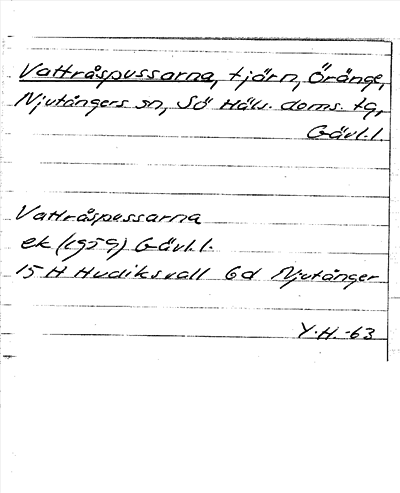 Vattråspussarna, tjärn, Öränge,
Njutångers sn, Sö Häls. doms. tg,
Gävl.l.
Vattråspussarna
ek (1959) Gävl.l.
15 H Hudiksvall 6d Njutånger
Y.H.-63